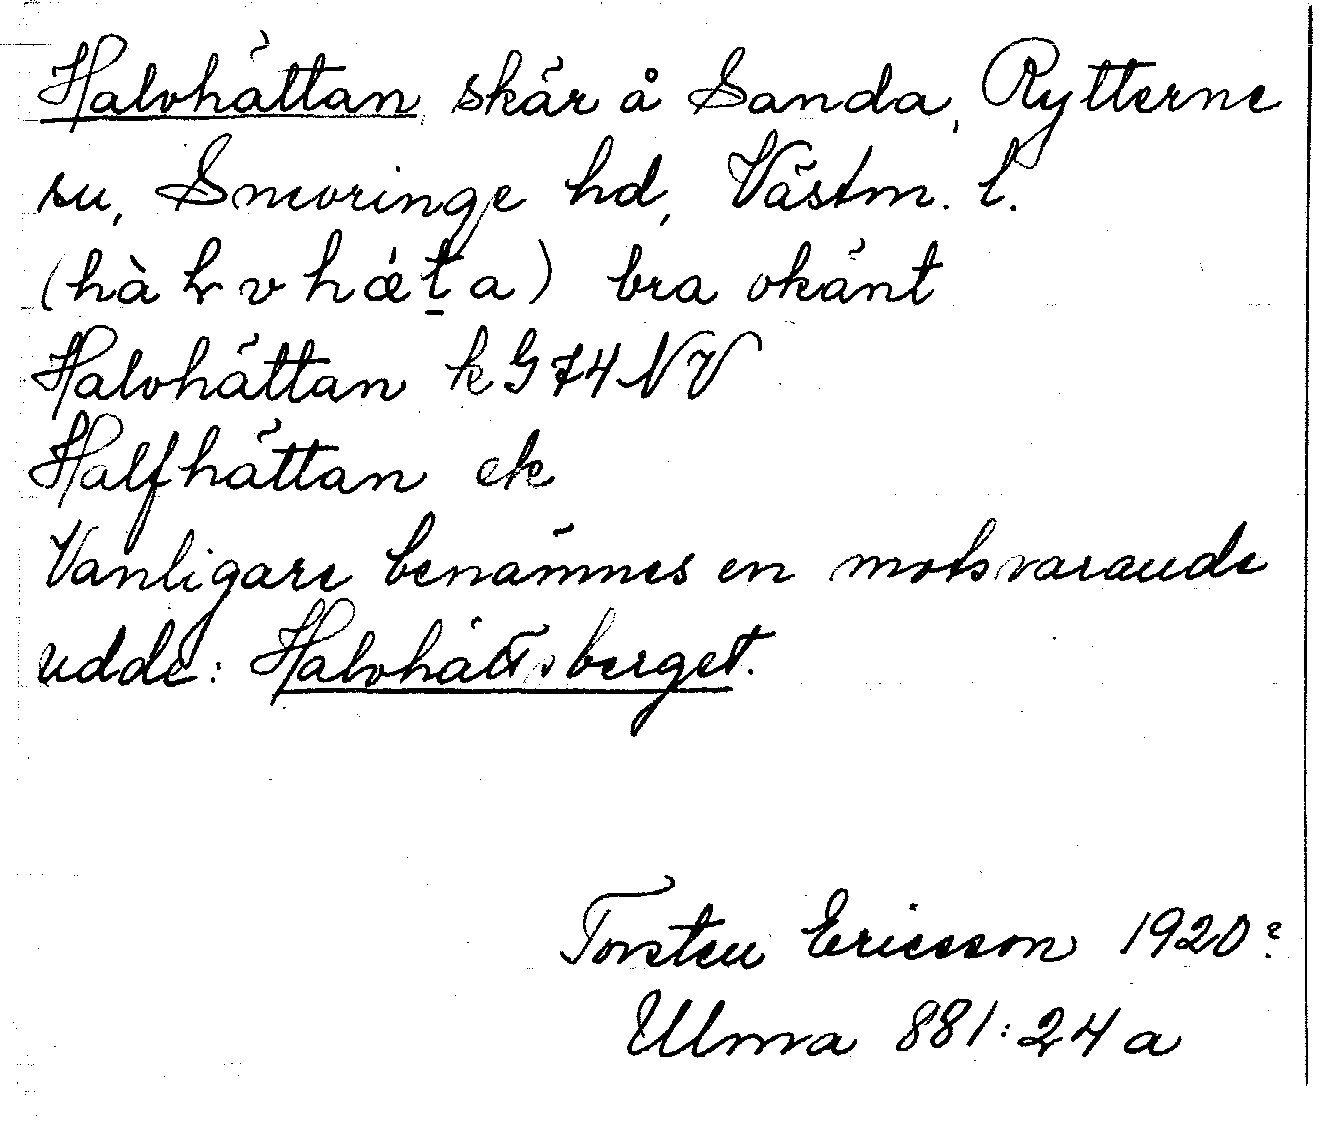 Halvhättan, skär å Sanda, Rytterne
sn, Snevringe hd, Västm. l.
(hàłvhǽt̲a) bra okänt
Halvhättan kG74NV
Halfhättan ek
Vanligare benämnes en motsvarande
udde: Halvhättsberget.
Torsten Ericsson 1920?
Ulma 881:24a